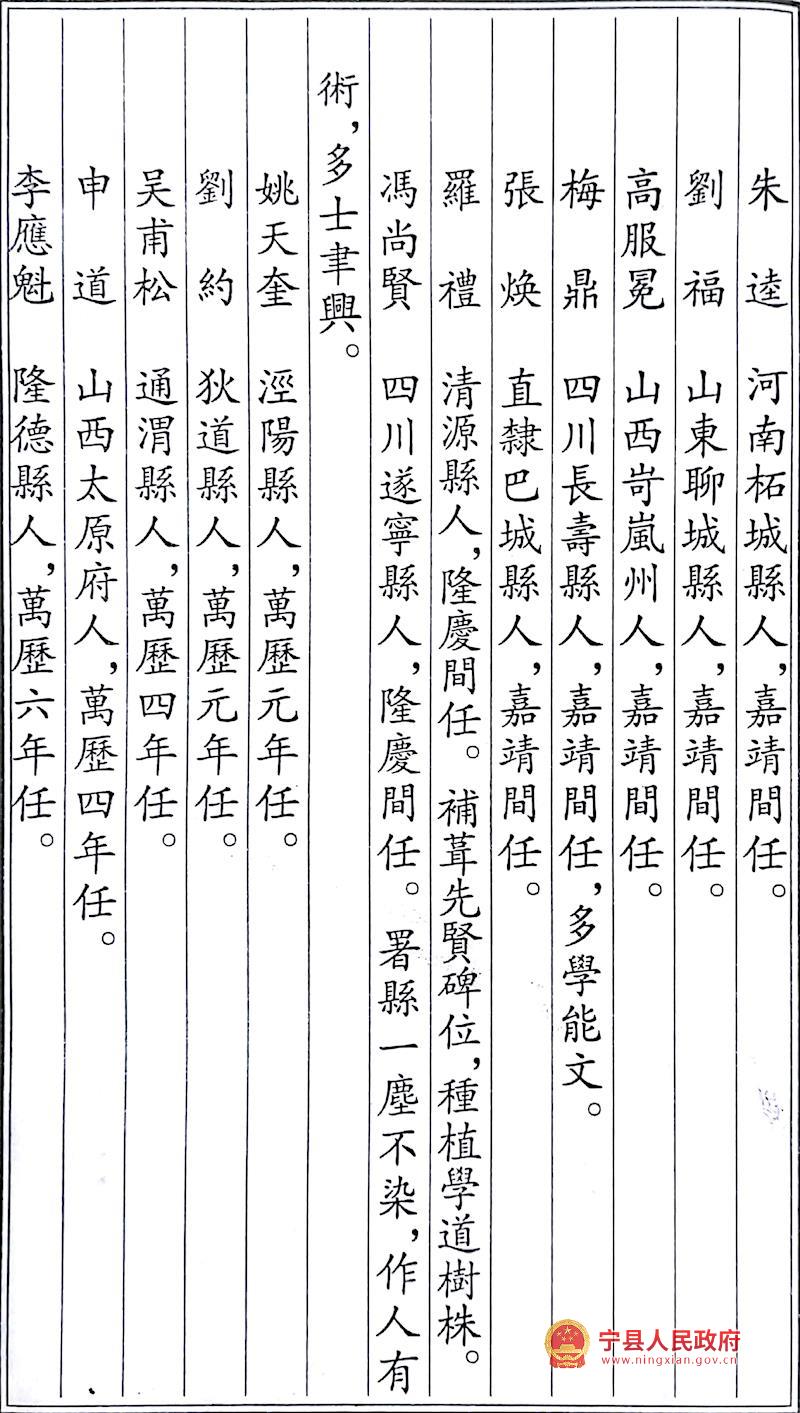 朱逵 河南柘城縣人，嘉靖間任。
劉福 山東聊城縣人，嘉靖間任。
高服冕 山西岢嵐州人，嘉靖間任。
梅鼎 四川長壽縣人，嘉靖間任，多學能文。
張煥 直隸巴城縣人，嘉靖間任。
羅禮 清源縣人，隆慶間任。補葺先賢碑位，種植學道樹株。
馮尚賢 四川遂寧縣人，隆慶間任。署縣一塵不染，作人有
術，多士聿興。
姚天奎 涇陽縣人，萬歷元年任。
劉約 狄道縣人，萬歷元年任。
吴甫松 通渭縣人，萬歷四年任。
申道 山西太原府人，萬歷四年任。
李應魁 隆德縣人，萬歷六年任。
宁县人民政府
www.ningxian.gov.cn